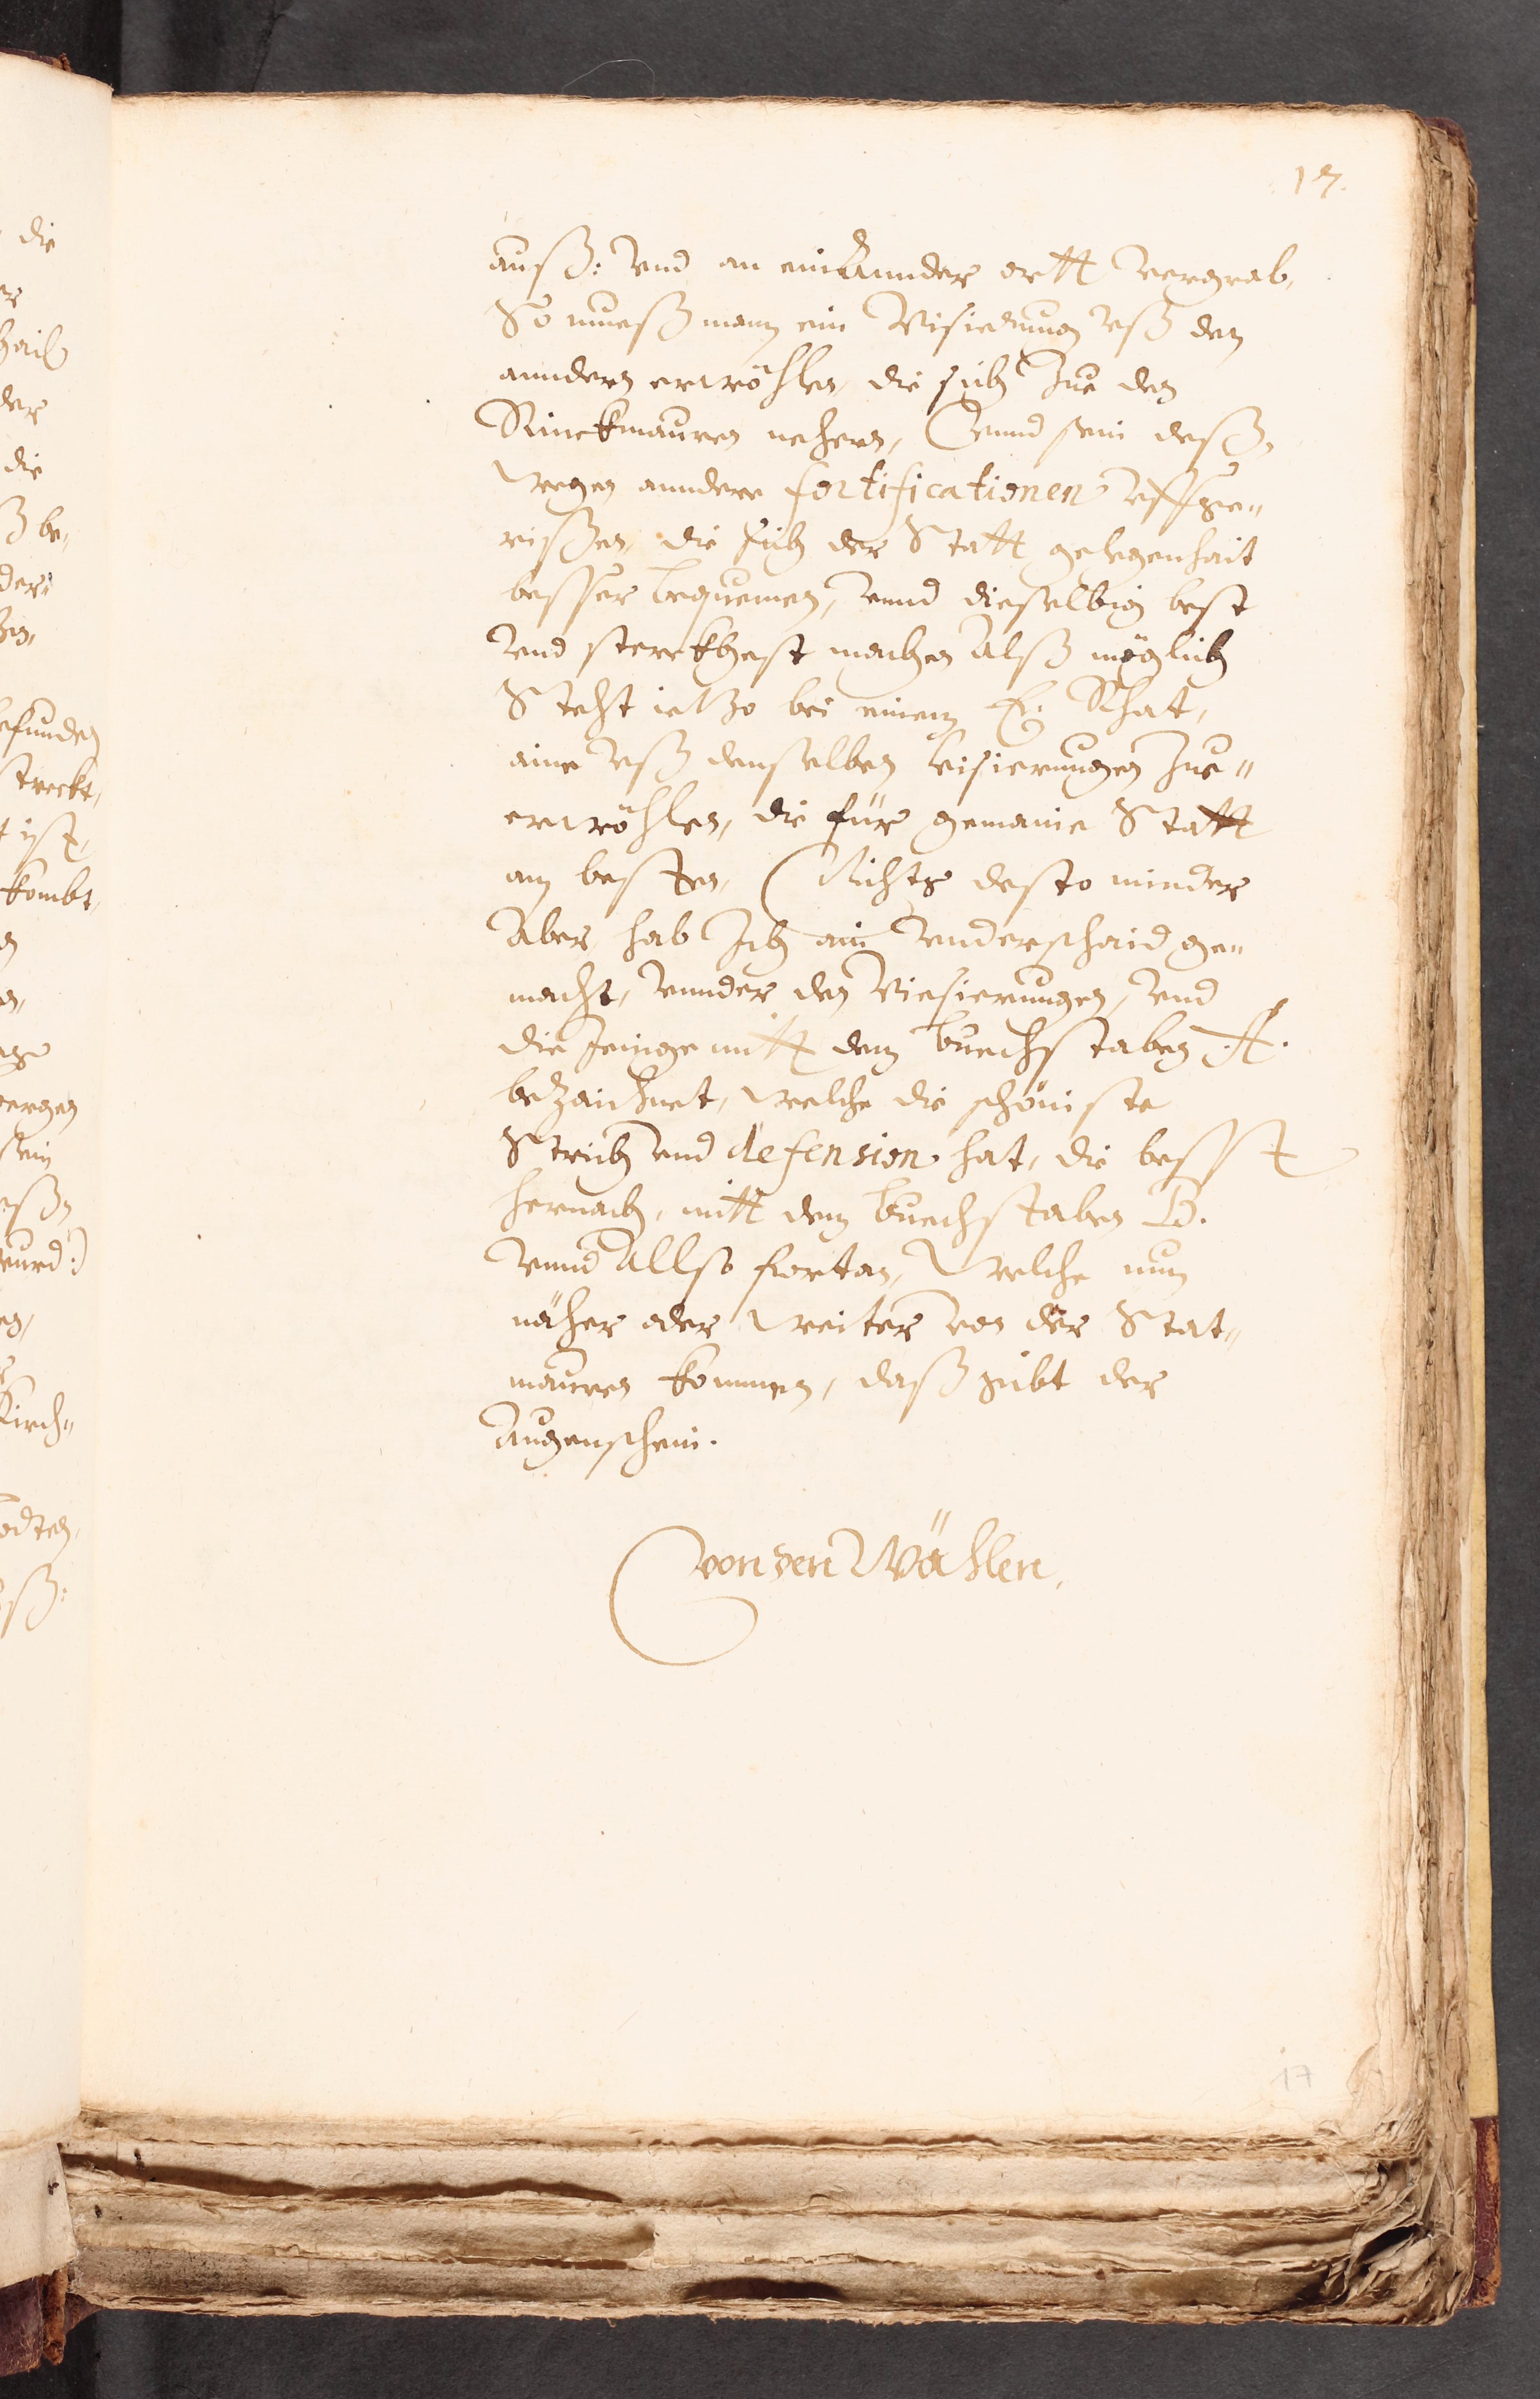 17.
auß: vnd an ein annder ortt vergrab,
So mueß mann ein Visierung vß den
anndern erwöhlen, die sich Zue den
Rinckmauren nehern, Vnnd sein deß„
wegen anndere fortificationen vffge„
rißen, die sich der Statt gelegenhait
besser bequemen, vnnd dieselbig best
vnd sterckhest machen Alß möglich
Steht ietzo bei einem E. Rhat,
aine vß denselben visierungen Zue„
erwöhlen, die für gemaine Statt
am besten, Nichts desto minder
Aber hab Ich ain vnderschaid ge„
macht, vnnder den Viesierungen, vnd
die Jeinige mitt dem buechstaben A.
bezaichnet, welche die schöniste
Strich vnd defension hat, die besst
hernach, mitt dem buechstaben B.
vnnd Allso fortan, Welche nun
näher oder weiter von der Stat„
mauren kommen, daß gibt der
Augenschein.
Von den Wählen,
17
die
der
die
ß be„
der
streckt,
ist,
kombt,
Kirch„